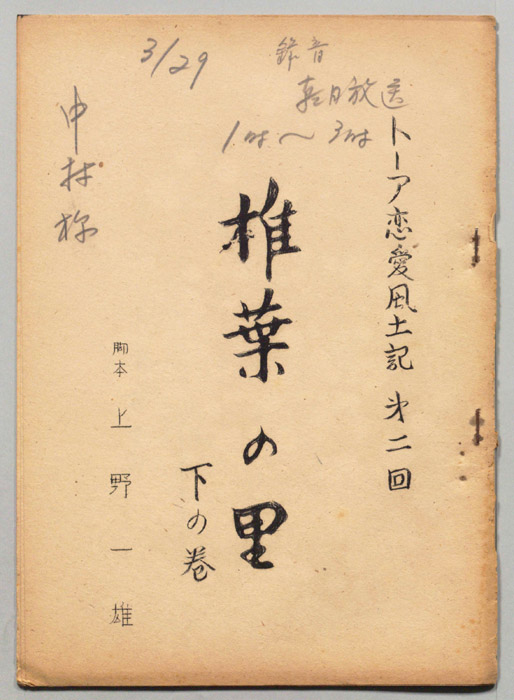 3/29
録音
朝日放送
1時〜3時
中村様
トーア恋愛風土記 第二回
椎葉の里
下の巻
脚本 上野一雄